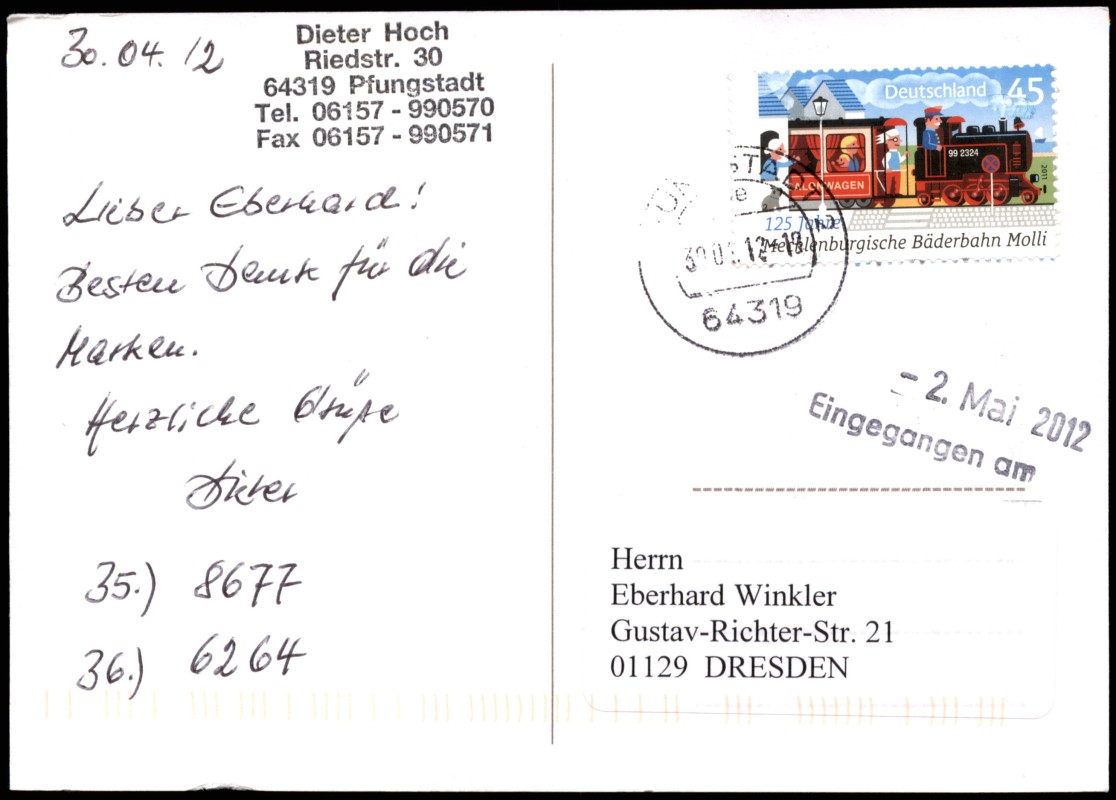 30.04.12
Dieter Hoch
Riedstr. 30
64319 Pfungstadt
Tel. 06157 - 990570
Fax 06157 - 990571
Lieber Eberhard!
Besten Dank für die
Marken.
Herzliche Grüße
Dieter
35.) 8677
36.) 6264
Deutschland 45
99 2324
2011
125 Jahre
Mecklenburgische Bäderbahn Molli
64319
- 2. Mai 2012
Eingegangen am
Herrn
Eberhard Winkler
Gustav-Richter-Str. 21
01129 DRESDEN